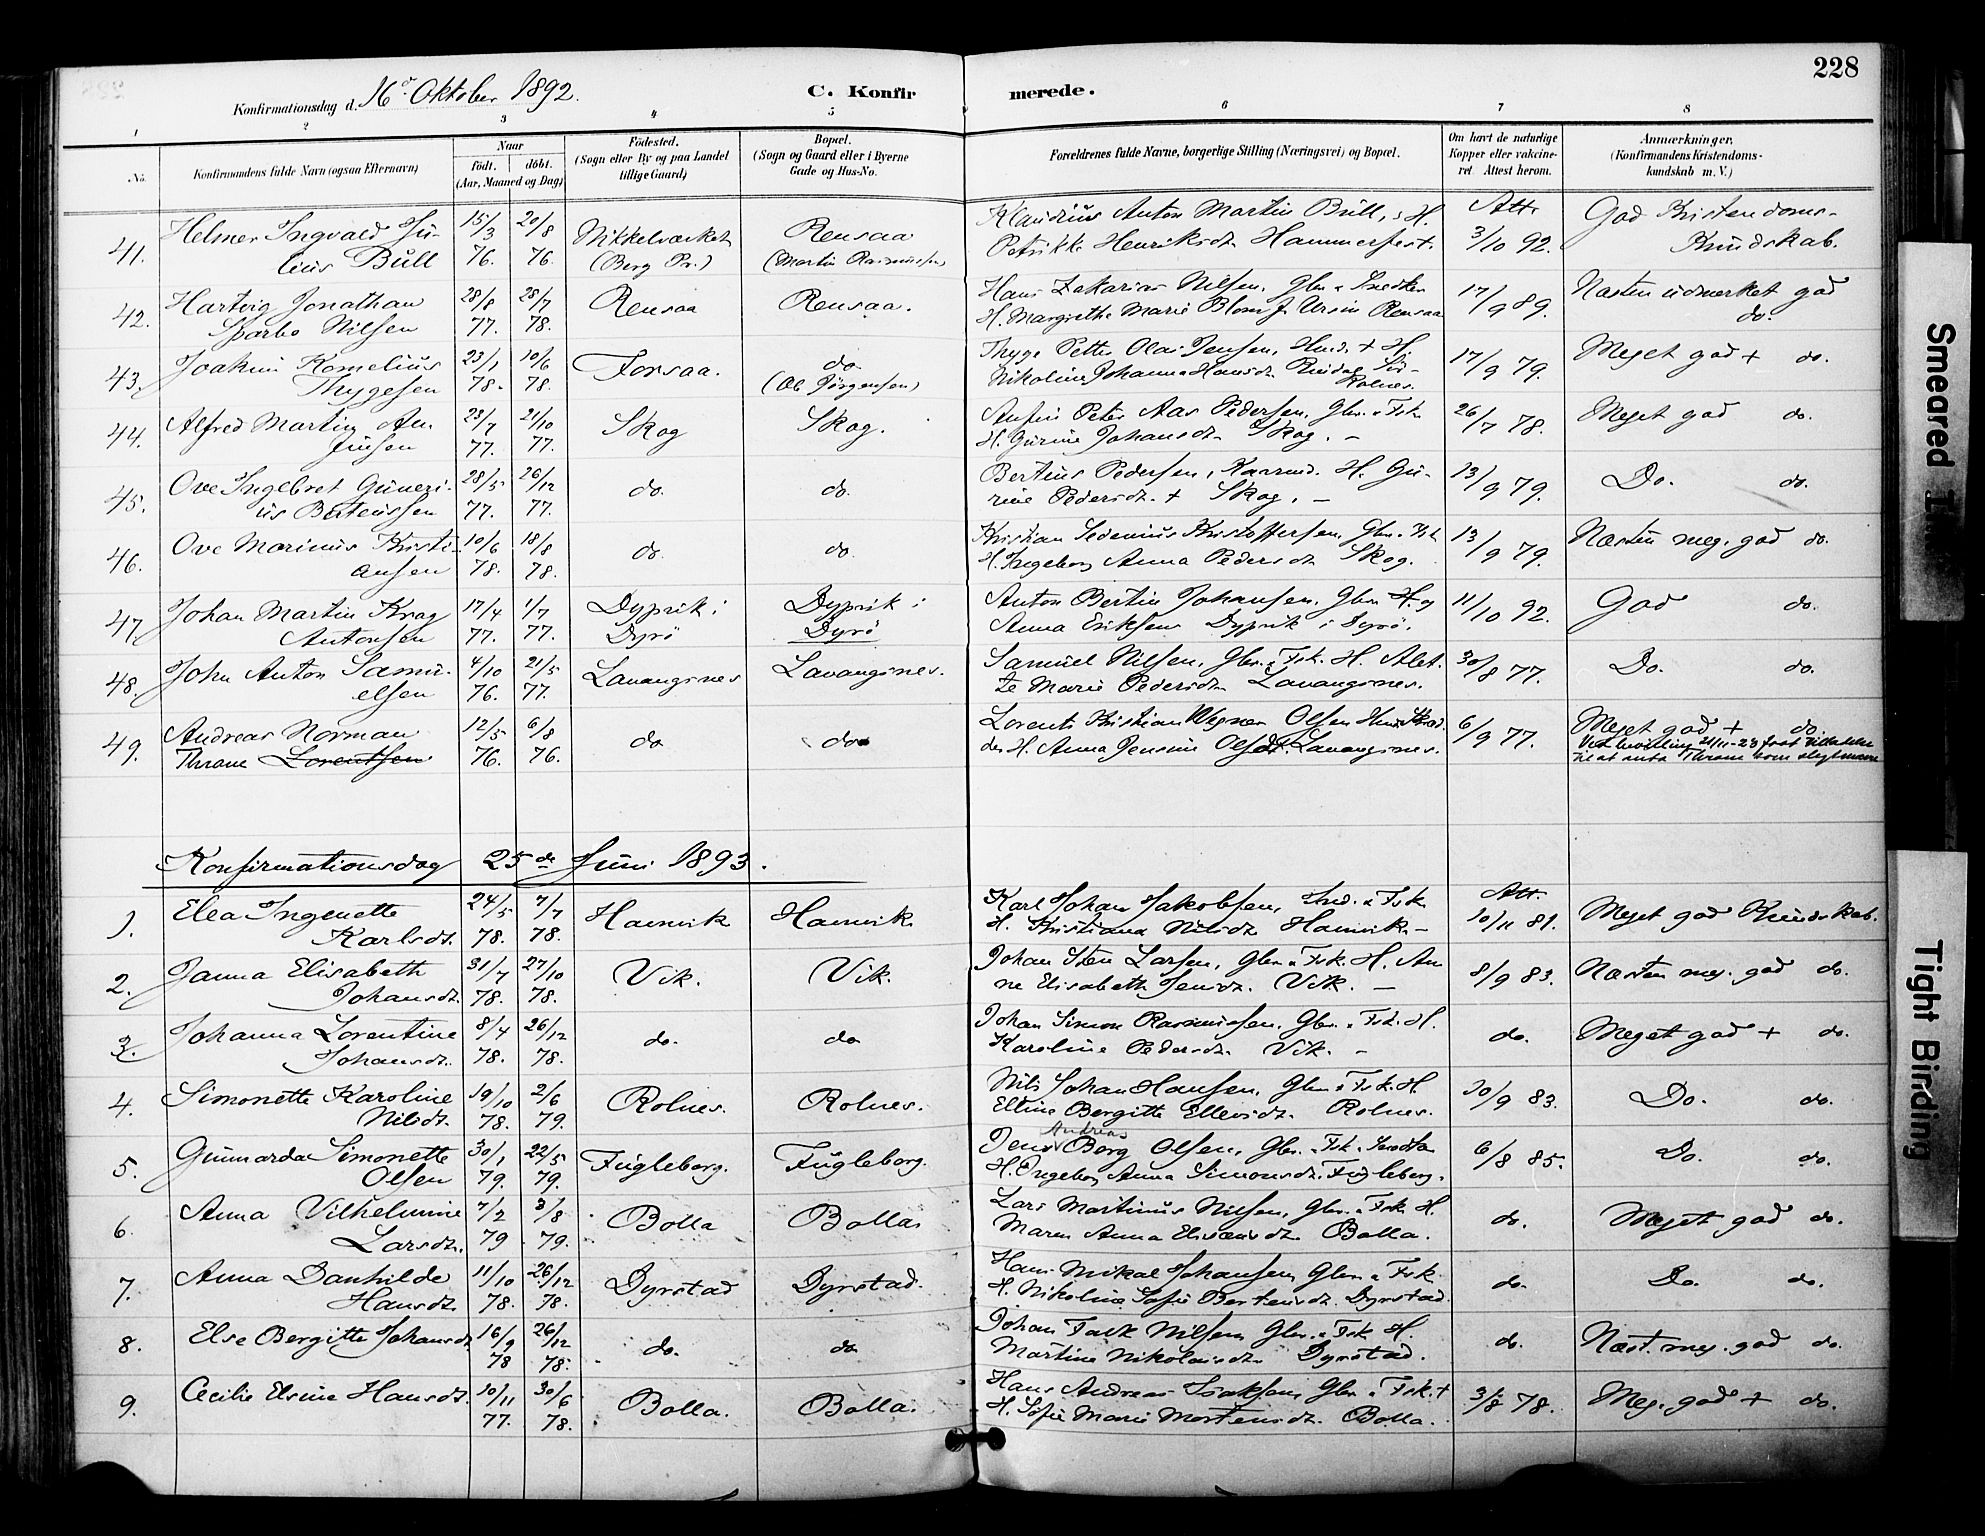 228
Konfirmationsdag d. 16de Oktober 1892.
C. Konfirmerede.
1 2 3 4 5 6 7 8
No.
Konfirmandens fulde Navn (ogsaa Efternavn)
Naar
født. døbt.
(Aar, Maaned og Dag)
Fødested.
(Sogn eller By og paa Landet
tillige Gaard)
Bopæl.
(Sogn og Gaard eller i Byerne
Gade og Hus-No.
Forældrenes fulde Navne, borgerlige Stilling (Næringsvei) og Bopæl.
Om havt de naturlige
Kopper eller vakcine-
ret. Attest herom.
Anmærkninger.
(Konfirmandens Kristendoms-
kundskab m. V.)
41. Helmer Ingvald Ju- 15/3 20/8 Nikkelværket Rensaa Klaudius Anton Martin Bull, o H. Att. God Kristendoms-
lius Bull 76. 76. (Berg Pr.) (Martin Rasmussen) Petrikke Henriksdt. Hammerfest. 3/10 92. Kundskab.
42. Hartvig Jonathan 28/8 28/7 Rensaa Rensaa. Hans Zakarias Nilsen, Gbr. & Snedker 17/9 89. Næsten udmerket god
Sparbo Nilsen 77. 78. H. Margrethe Marie Blom f. Ursin Rensaa do.
43. Joakim Kornelius 23/1 10/6 Forsaa. do. Thyge Petter Olai Jensen, Hmd. + H. 17/9 79. Meget god + do.
Thygesen 78. 78. (Ole Jørgensen) Nikoline Johanna Hansdt. Rolnes.
44. Alfred Martin An- 23/7 21/10 Skog Skog. Anfin Peter Aas Pedersen, Gbr. & Fsk. 26/7 78. Meget god do.
finsen 77. 77. H. Gurine Johansdt. Skog. –
45. Ove Ingebret Guneri- 28/5 26/12 do. do. Berteus Pedersen, Kaarmd. H. Gu- 13/9 79. Do. do.
us Berteussen 77. 77. rine Pedersdt. + Skog. –
46. Ove Marinus Kristi- 10/6 18/8 do. do. Kristian Sedenius Kristoffersen, Gbr. & Fsk. 13/9 79. Næsten meg. god do.
ansen 78. 78. H. Ingebor Anna Pedersdt. Skog.
47. Johan Martin Krag 17/4 1/7 Dypvik i Dypvik i Anton Bertin Johansen, Gbr. H. og 11/10 92. God do.
Antonsen 77. 77. Dyrø Dyrø Anna Eriksen Dypvik i Dyrø.
48. John Anton Samu- 4/10 21/5 Lavangsnes Lavangsnes. Samuel Nilsen, Gbr. & Fsk. H. Alet- 30/8 77. Do. do.
elsen 76. 77. te Marie Pedersdt. Lavangsnes.
49. Andreas Norman 12/5 6/8 do do Lorents Kristian Wegner Olsen 6/9 77. Meget god + do.
Thrane Lorentsen 76. 76. H. Anna Jensine Olsdt. Lavangsnes. Ved bevilling 21/11-23 faat tilladelse
til at anta Thrane som slegtnavn
Konfirmationsdag 25de Juni 1893.
1. Elea Ingenette 24/5 7/7 Hamvik Hamvik Karl Johan Jakobsen, Ind. & Fsk. Att. Meget god Kundskab.
Karlsdt. 78. 78. H. Kristiana Nilsdt. Hamvik. – 10/11 81.
2. Janna Elisabeth 31/7 27/10 Vik. Vik. Johan Sten Larsen, Gbr. & Fsk. H. An- 8/9 83. Næsten meg. god do.
Johansdt. 78. 78. ne Elisabeth Jensdt. Vik. –
3. Johanna Lorentine 8/4 26/12 do. do Johan Simon Rasmussen, Gbr. & Fsk. H. do. Meget god + do.
Johansdt. 78. 78. Karoline Pedersdt. Vik. –
4. Simonette Karoline 19/10 2/6 Rolnes. Rolnes. Nils Johan Hansen, Gbr. & Fsk. H. 20/9 83. Do. do.
Nilsdt. 78. 79. Elline Bergitte Ellevsdt. Rolnes.
5. Gunnarda Simonette 30/1 22/5 Fugleborg. Fugleborg. Jens Andreas Borg Olsen, Gbr. & Fsk. 6/8 85. Do. do.
Olsen 79. 79. H. Ingebor Anna Simonsdt. Fugleborg.
6. Anna Vilhelmine 7/2 3/8 Bolla Bolla. Lars Martinus Nilsen, Gbr. & Fsk. H. do. Meget god do.
Larsdt. 79 79. Maren Anna Elisæusdt. Bolla.
7. Anna Danhilde 11/10 26/12 Dyrstad Dyrstad. Hans Mikal Johansen Gbr. & Fsk. do. Do. do.
Hansdt. 78. 78. H. Nikoline Sofie Berteusdt. Dyrstad.
8. Else Bergitte Johansdt. 16/9 26/12 do. do Johan Falk Nilsen Gbr. & Fsk. H. do. Næst. meg. god do.
78 78. Martine Nikolaisdt. Dyrstad.
9. Cecilie Elsine Hansdt. 10/11 30/6 Bolla. Bolla. Hans Andreas Isaksen, Gbr. & Fsk. + 3/8 78. Meg. god + do.
77. 78. H. Sofie Marie Mortensdt. Bolla.
Smeared
Tight Birding